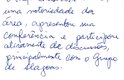 uma notoriedade da
área, apresentou sua
conferência e participou
ativamente de discussões,
principalmente com o grupo
de